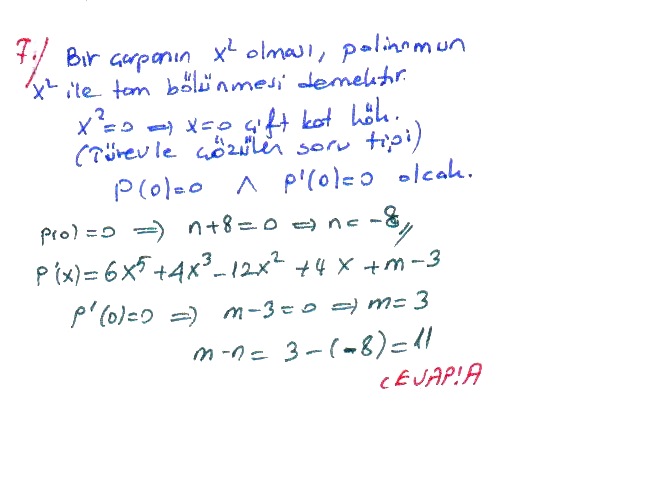 7-) Bir çarpanın x² olması, polinomun
x² ile tam bölünmesi demektir.
x²=0 ⇒ x=0 çift kat kök.
(Türevle çözülen soru tipi)
P(0)=0 ∧ P'(0)=0 olcak.
P(0)=0 ⇒ n+8=0 ⇒ n=-8//
P'(x)=6x⁵+4x³-12x²+4x+m-3
P'(0)=0 ⇒ m-3=0 ⇒ m=3
m-n= 3-(-8)=11
CEVAP:A